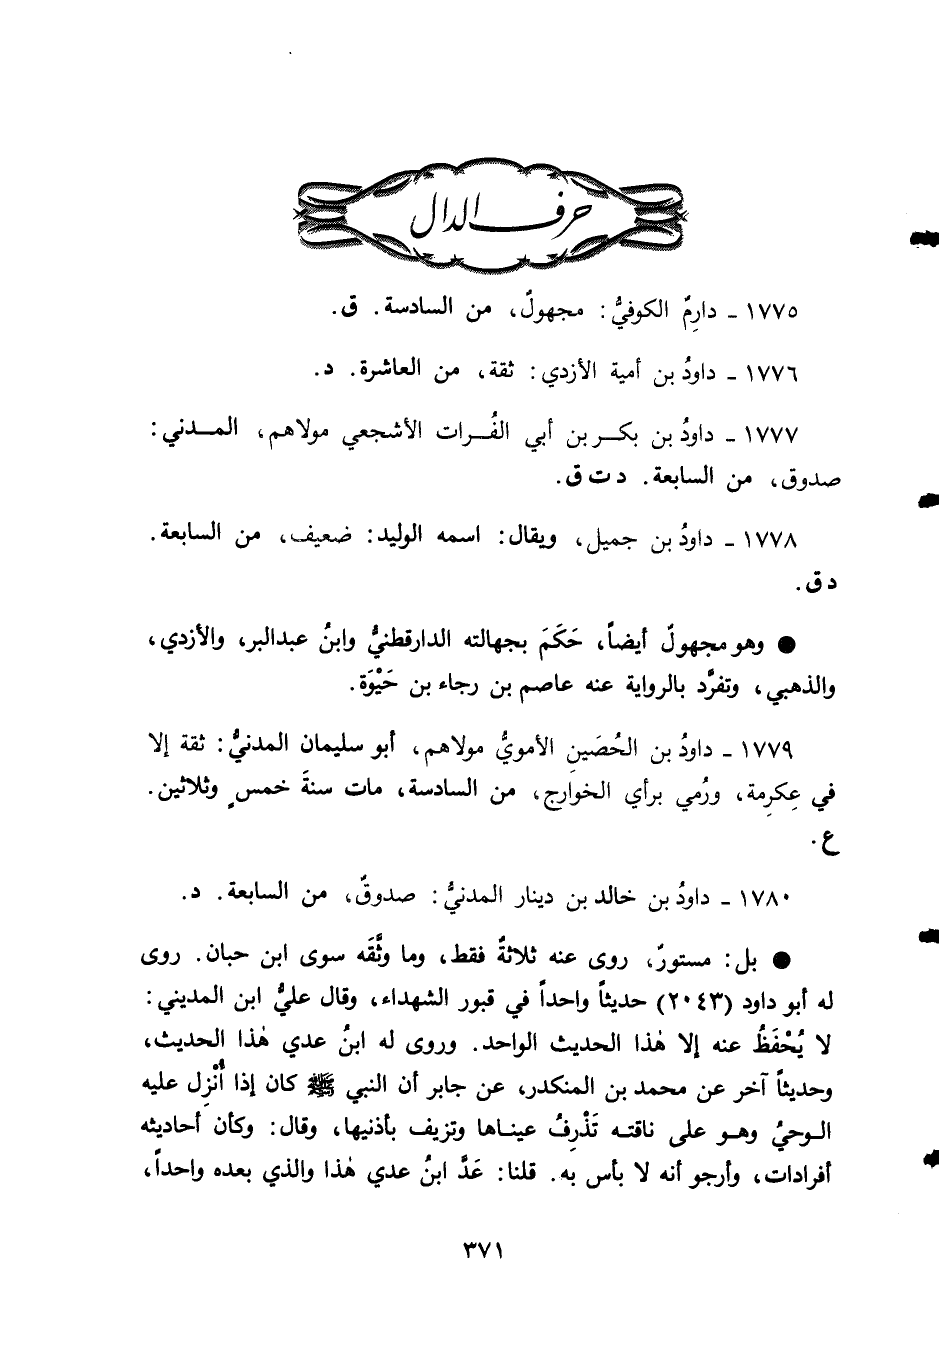 حرف الدال
١٧٧٥ ـ دارِمٌ الكوفيُّ: مجهولٌ، من السادسة. ق.
١٧٧٦ ـ داودُ بن أمية الأزدي: ثقة، من العاشرة. د.
١٧٧٧ ـ داودُ بن بكر بن أبي الفُرات الأشجعي مولاهم، المدني:
صدوق، من السابعة. د ت ق.
١٧٧٨ ـ داودُ بن جميل، ويقال: اسمه الوليد: ضعيف، من السابعة.
د ق.
● وهو مجهولٌ أيضاً، حَكَمَ بجهالته الدارقطنيُّ وابنُ عبدالبر، والأزدي،
والذهبي، وتفرَّد بالرواية عنه عاصم بن رجاء بن حَيْوَة.
١٧٧٩ ـ داودُ بن الحُصَينِ الأمويُّ مولاهم، أبو سليمان المدنيُّ: ثقة إلا
في عِكرِمة، ورُمي برأي الخوارج، من السادسة، مات سنةَ خمسٍ وثلاثين.
ع.
١٧٨٠ ـ داودُ بن خالد بن دينار المدنيُّ: صدوقٌ، من السابعة. د.
● بل: مستورٌ، روى عنه ثلاثةٌ فقط، وما وثَّقَه سوى ابن حبان. روى
له أبو داود (٢٠٤٣) حديثاً واحداً في قبور الشهداء، وقال عليُّ ابن المديني:
لا يُحْفَظُ عنه إلا هٰذا الحديث الواحد. وروى له ابنُ عدي هٰذا الحديث،
وحديثاً آخر عن محمد بن المنكدر، عن جابر أن النبي ﷺ كان إذا أُنْزِل عليه
الوحيُ وهو على ناقته تَذْرِفُ عيناها وتزيف بأذنيها، وقال: وكأن أحاديثه
أفرادات، وأرجو أنه لا بأس به. قلنا: عَدَّ ابنُ عدي هٰذا والذي بعده واحداً،
٣٧١